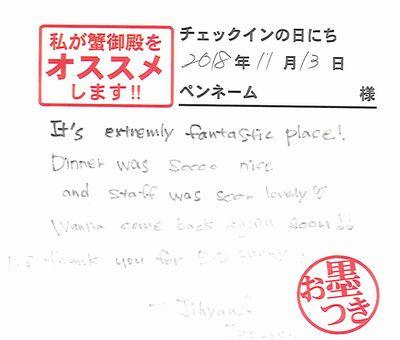 私が蟹御殿を
オススメ
します!!
チェックインの日にち
2018年11月13日
ペンネーム 様
It's extremly fantastic place!
Dinner was Soooo nice
and staff was sooo lovely♡
Wanna come back again soon!!
P.S thank you for B.D
お墨つき